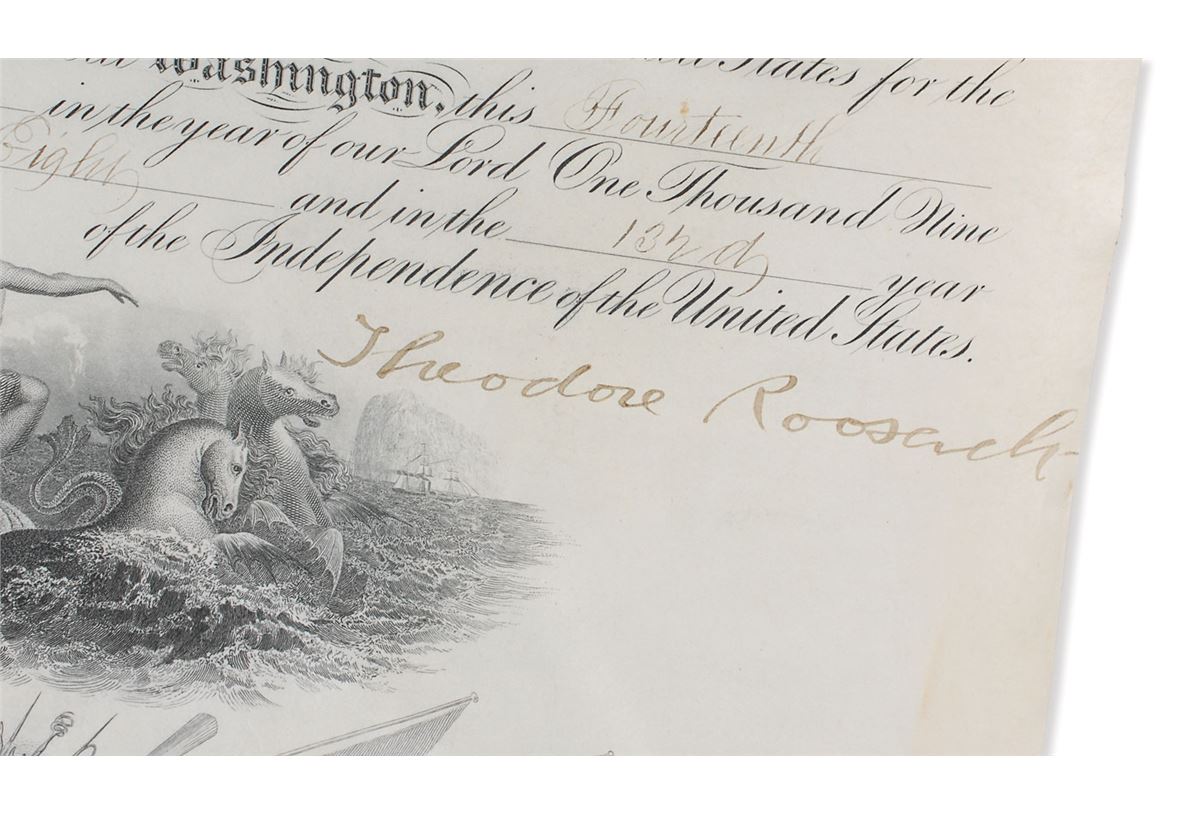 Washington, this Fourteenth States for the
in the year of our Lord One Thousand Nine
Eight and in the 132d year
of the Independence of the United States.
Theodore Roosevelt